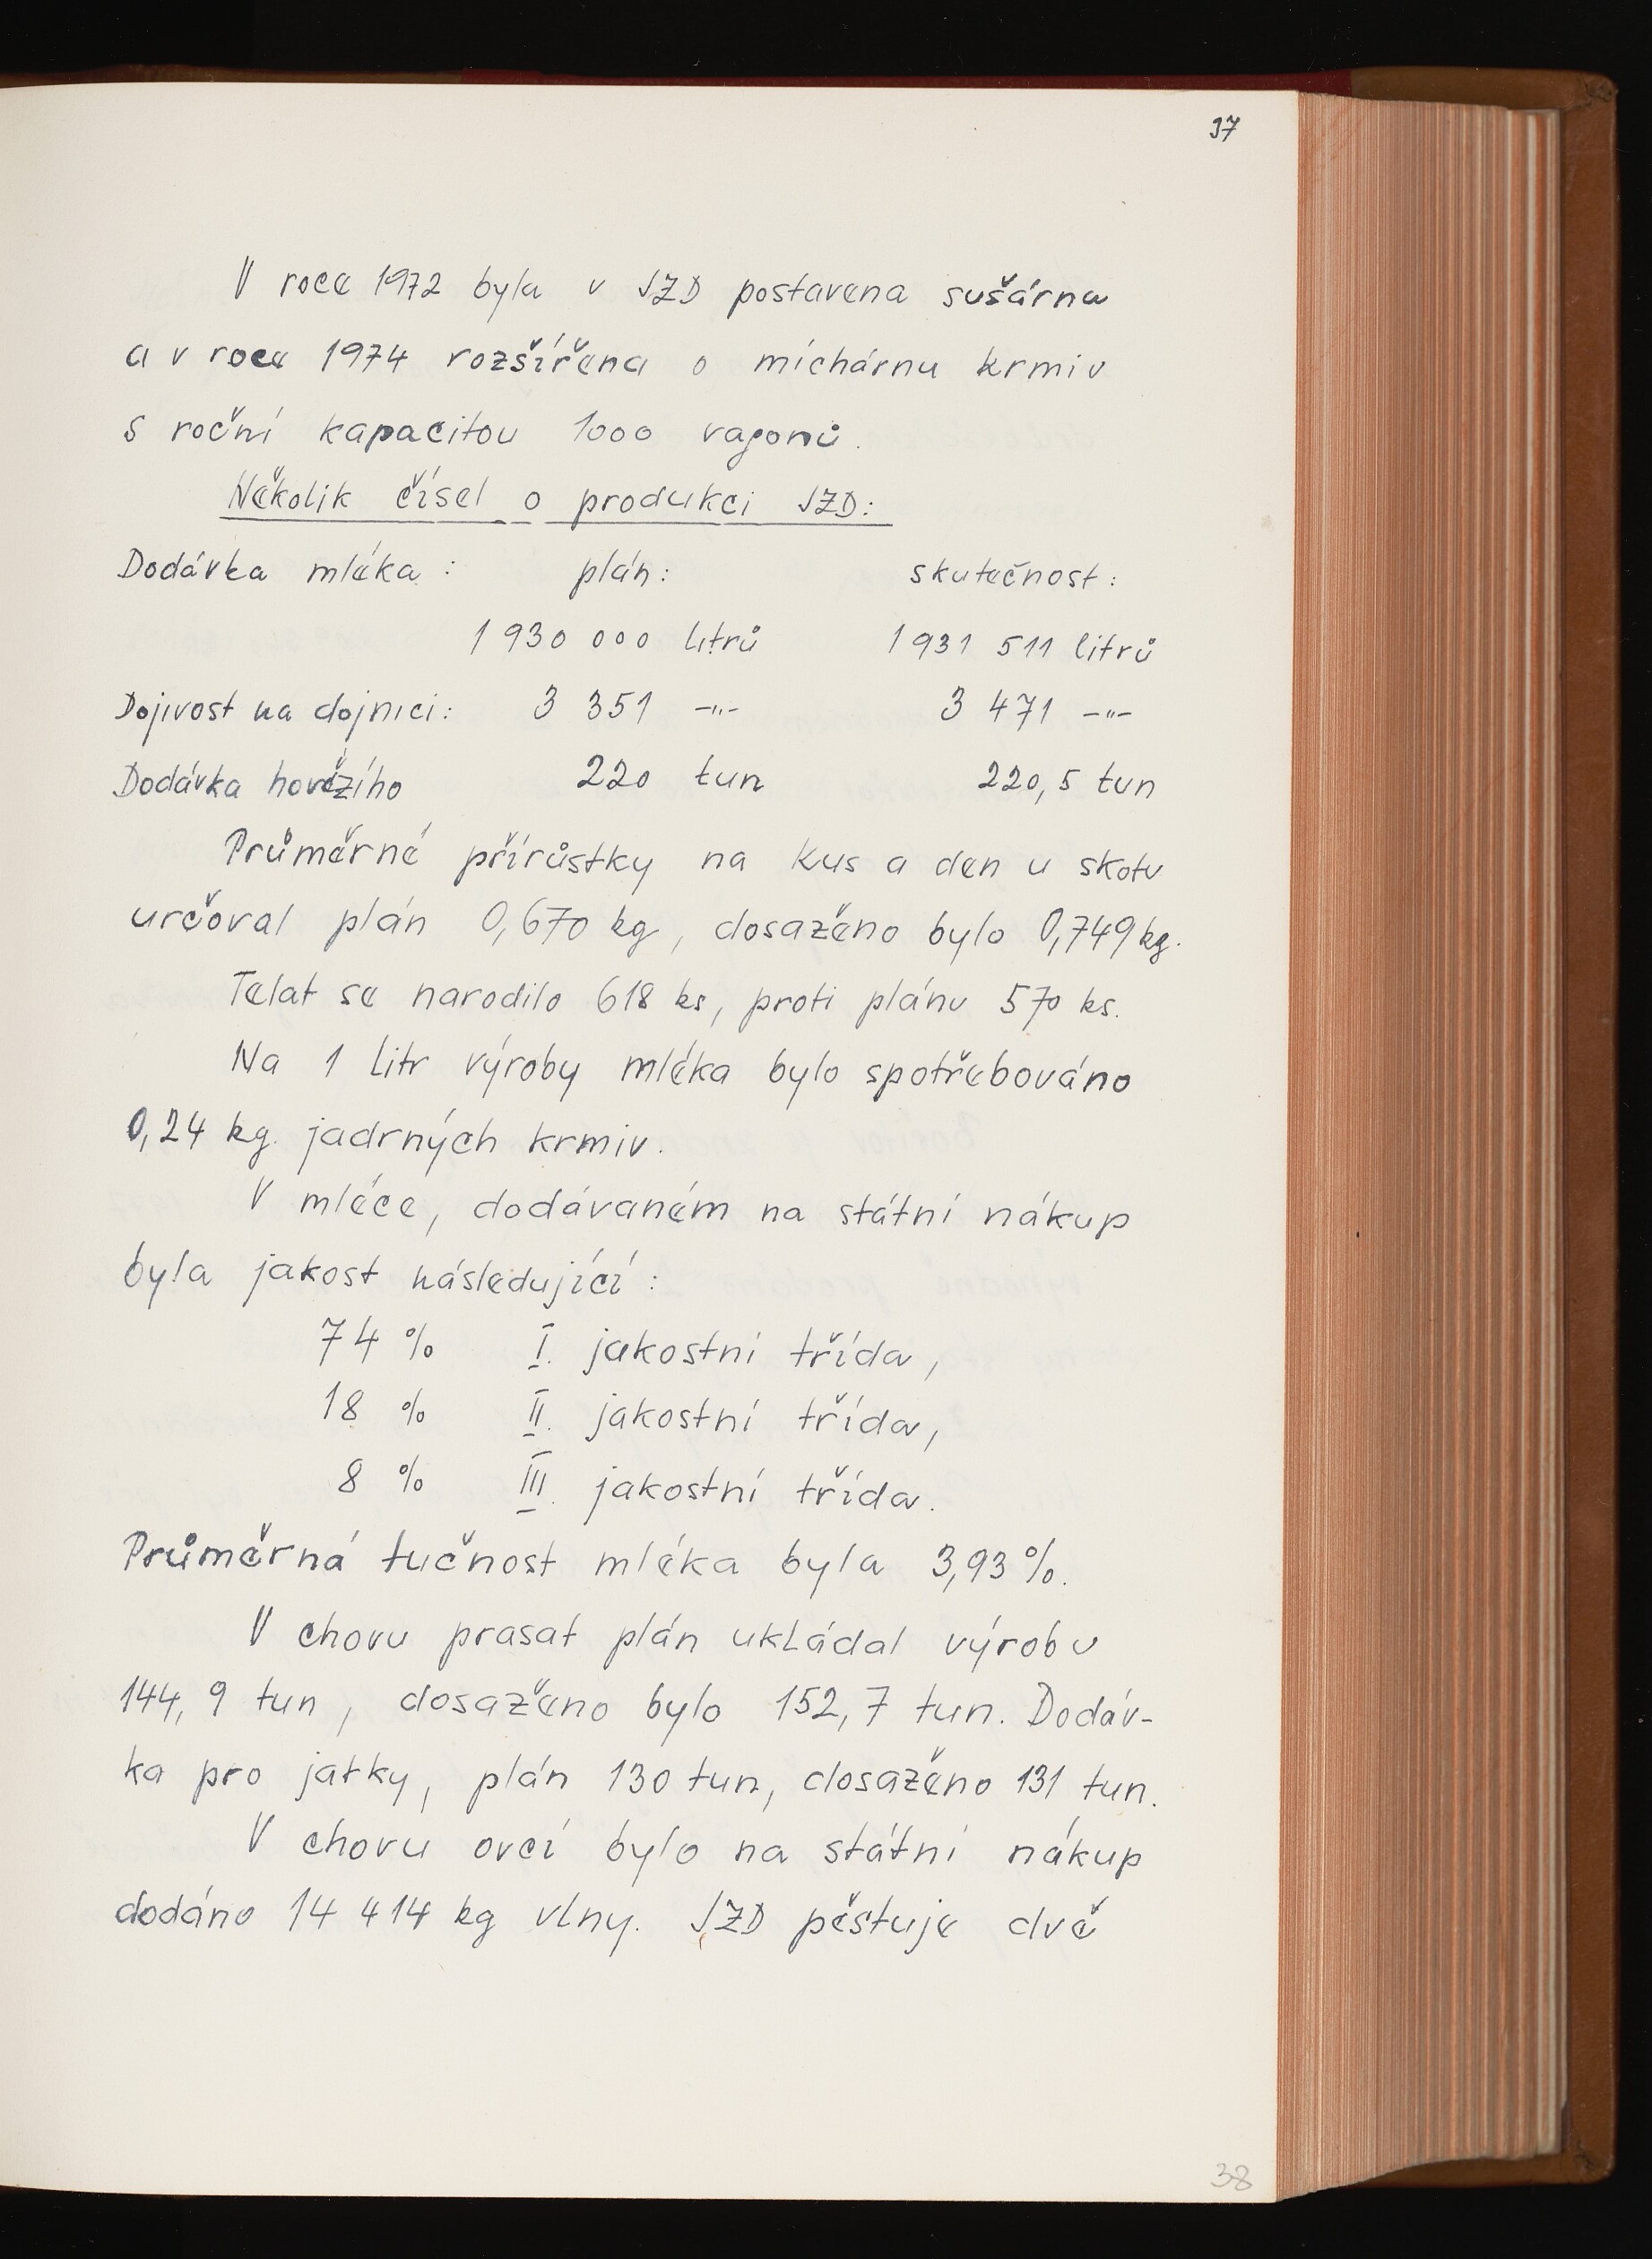 37
V roce 1972 byla v JZD postavena sušárna
a v roce 1974 rozšířena o míchárnu krmiv
s roční kapacitou 1000 vagonů.
Několik čísel o produkci JZD:
Dodávka mléka: plán: skutečnost:
1 930 000 litrů 1 931 511 litrů
Dojivost na dojnici: 3 351 -"- 3 471 -"-
Dodávka hovězího 220 tun 220,5 tun
Průměrné přírůstky na kus a den u skotu
určoval plán 0,670 kg, dosaženo bylo 0,749 kg.
Telat se narodilo 618 ks, proti plánu 570 ks.
Na 1 litr výroby mléka bylo spotřebováno
0,24 kg. jadrných krmiv.
V mléce, dodávaném na státní nákup
byla jakost následující:
74 % I. jakostní třída,
18 % II. jakostní třída,
8 % III. jakostní třída.
Průměrná tučnost mléka byla 3,93 %.
V chovu prasat plán ukládal výrobu
144,9 tun, dosaženo bylo 152,7 tun. Dodáv-
ka pro jatky, plán 130 tun, dosaženo 131 tun.
V chovu ovcí bylo na státní nákup
dodáno 14 414 kg vlny. JZD pěstuje dvě
38